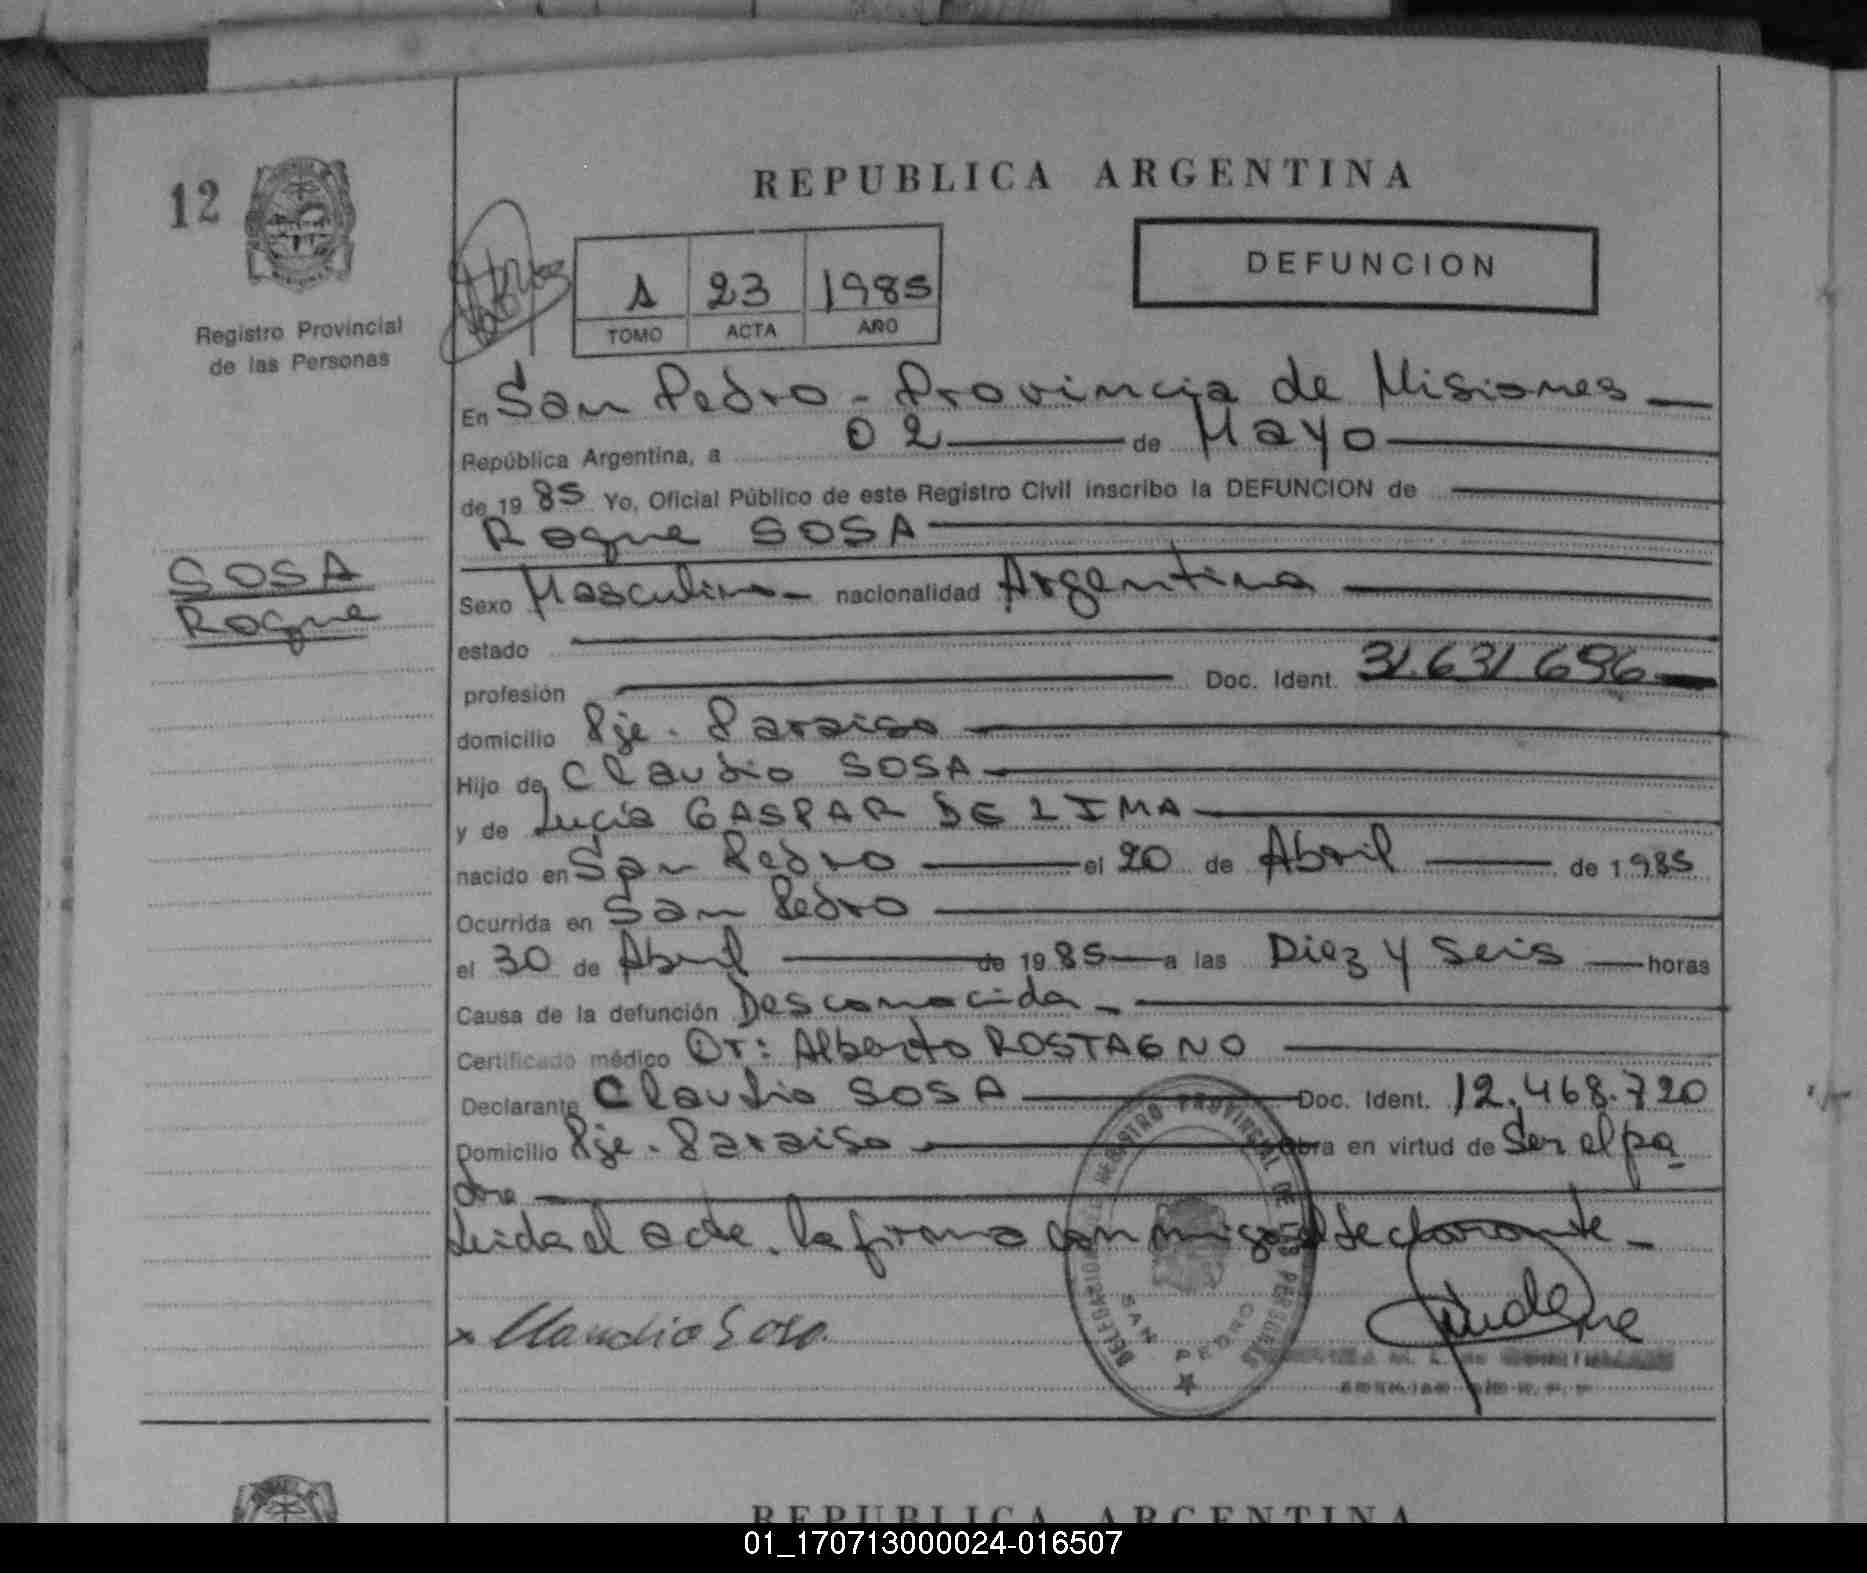 12
REPUBLICA ARGENTINA
DEFUNCION
A 23 1985
TOMO ACTA AÑO
Registro Provincial
de las Personas
En San Pedro - Provincia de Misiones
República Argentina, a 02 de Mayo
de 1985 Yo, Oficial Público de este Registro Civil inscribo la DEFUNCION de
Roque SOSA
SOSA
Roque
Sexo Masculino nacionalidad Argentina
estado
profesión Doc. Ident. 31.631696
domicilio Pje. Paraiso
Hijo de Claudio SOSA
y de Lucía GASPAR DE LIMA
nacido en San Pedro el 20 de Abril de 1985
Ocurrida en San Pedro
el 30 de Abril de 1985 a las Diez y Seis horas
Causa de la defunción Desconocida -
Certificado médico Dr: Alberto ROSTAGNO
Declarante Claudio SOSA Doc. Ident. 12.468.720
Domicilio Pje. Paraiso Obra en virtud de Ser el pa
dre
Leida el acta, la firma conmigo el declarante -
x Claudio Sosa
DELEGACION DEL REGISTRO PROVINCIAL DE LAS PERSONAS
SAN PEDRO
REPUBLICA ARGENTINA
01_170713000024-016507